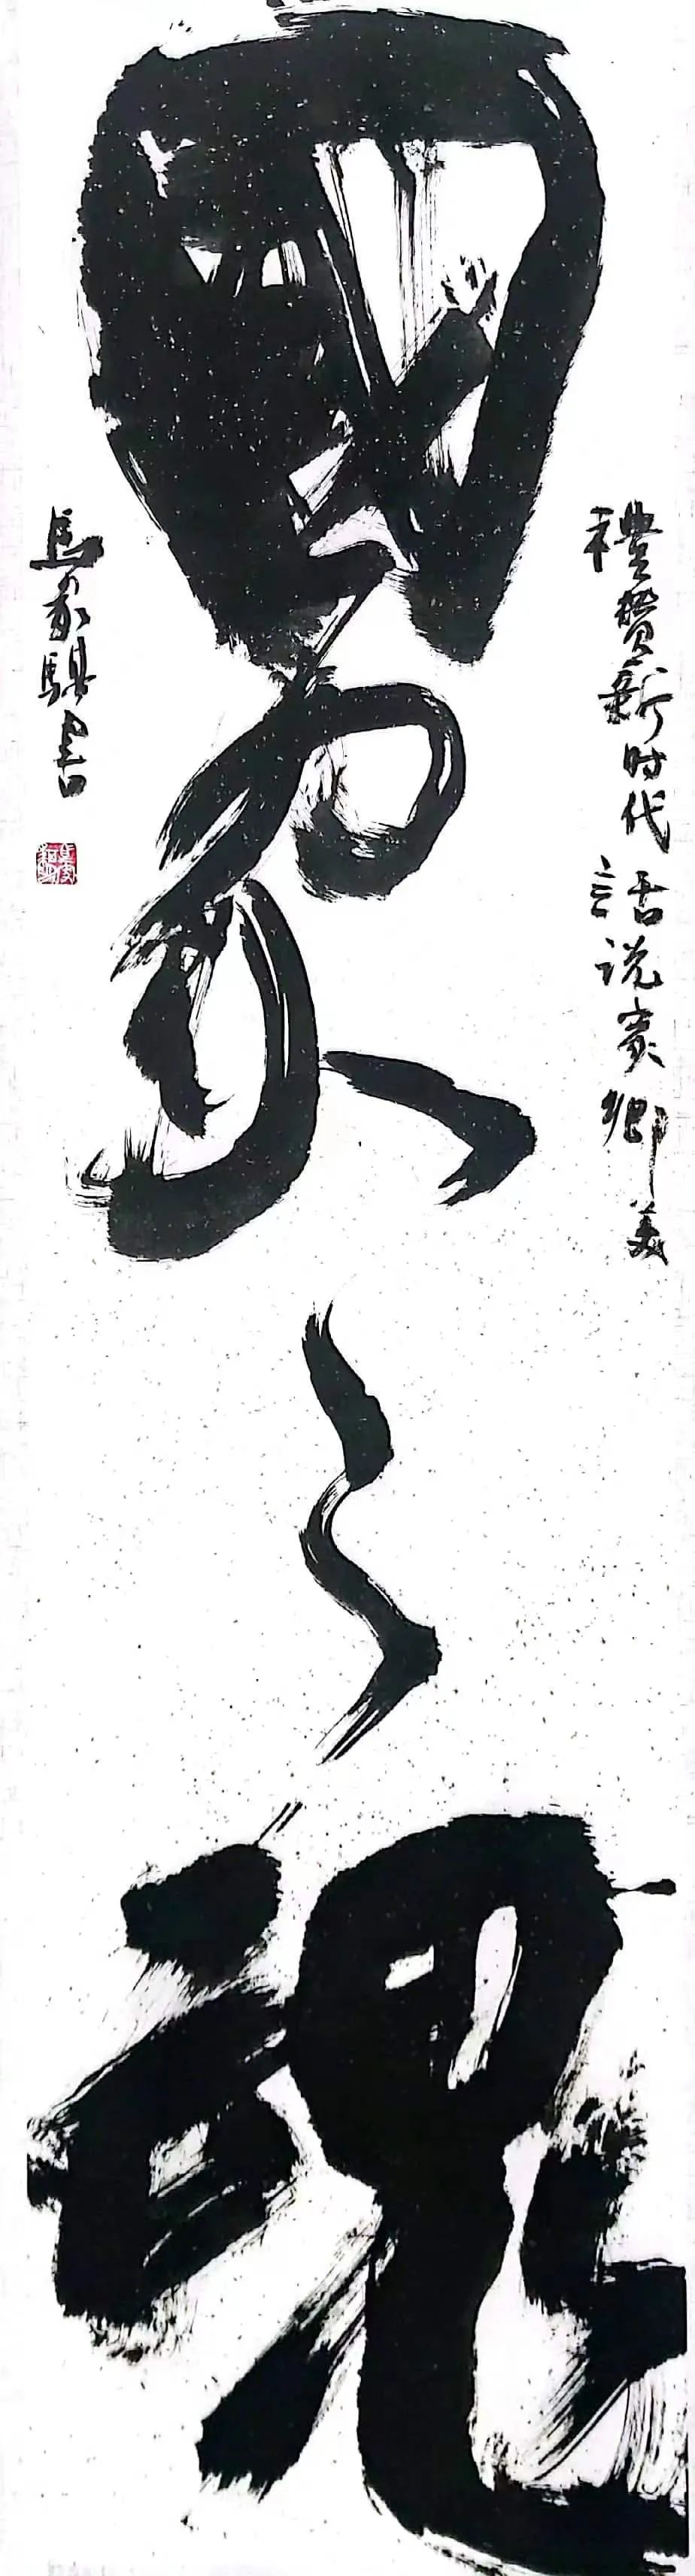 禮贊新时代話说家鄉美
國家之魂
馬家騏書